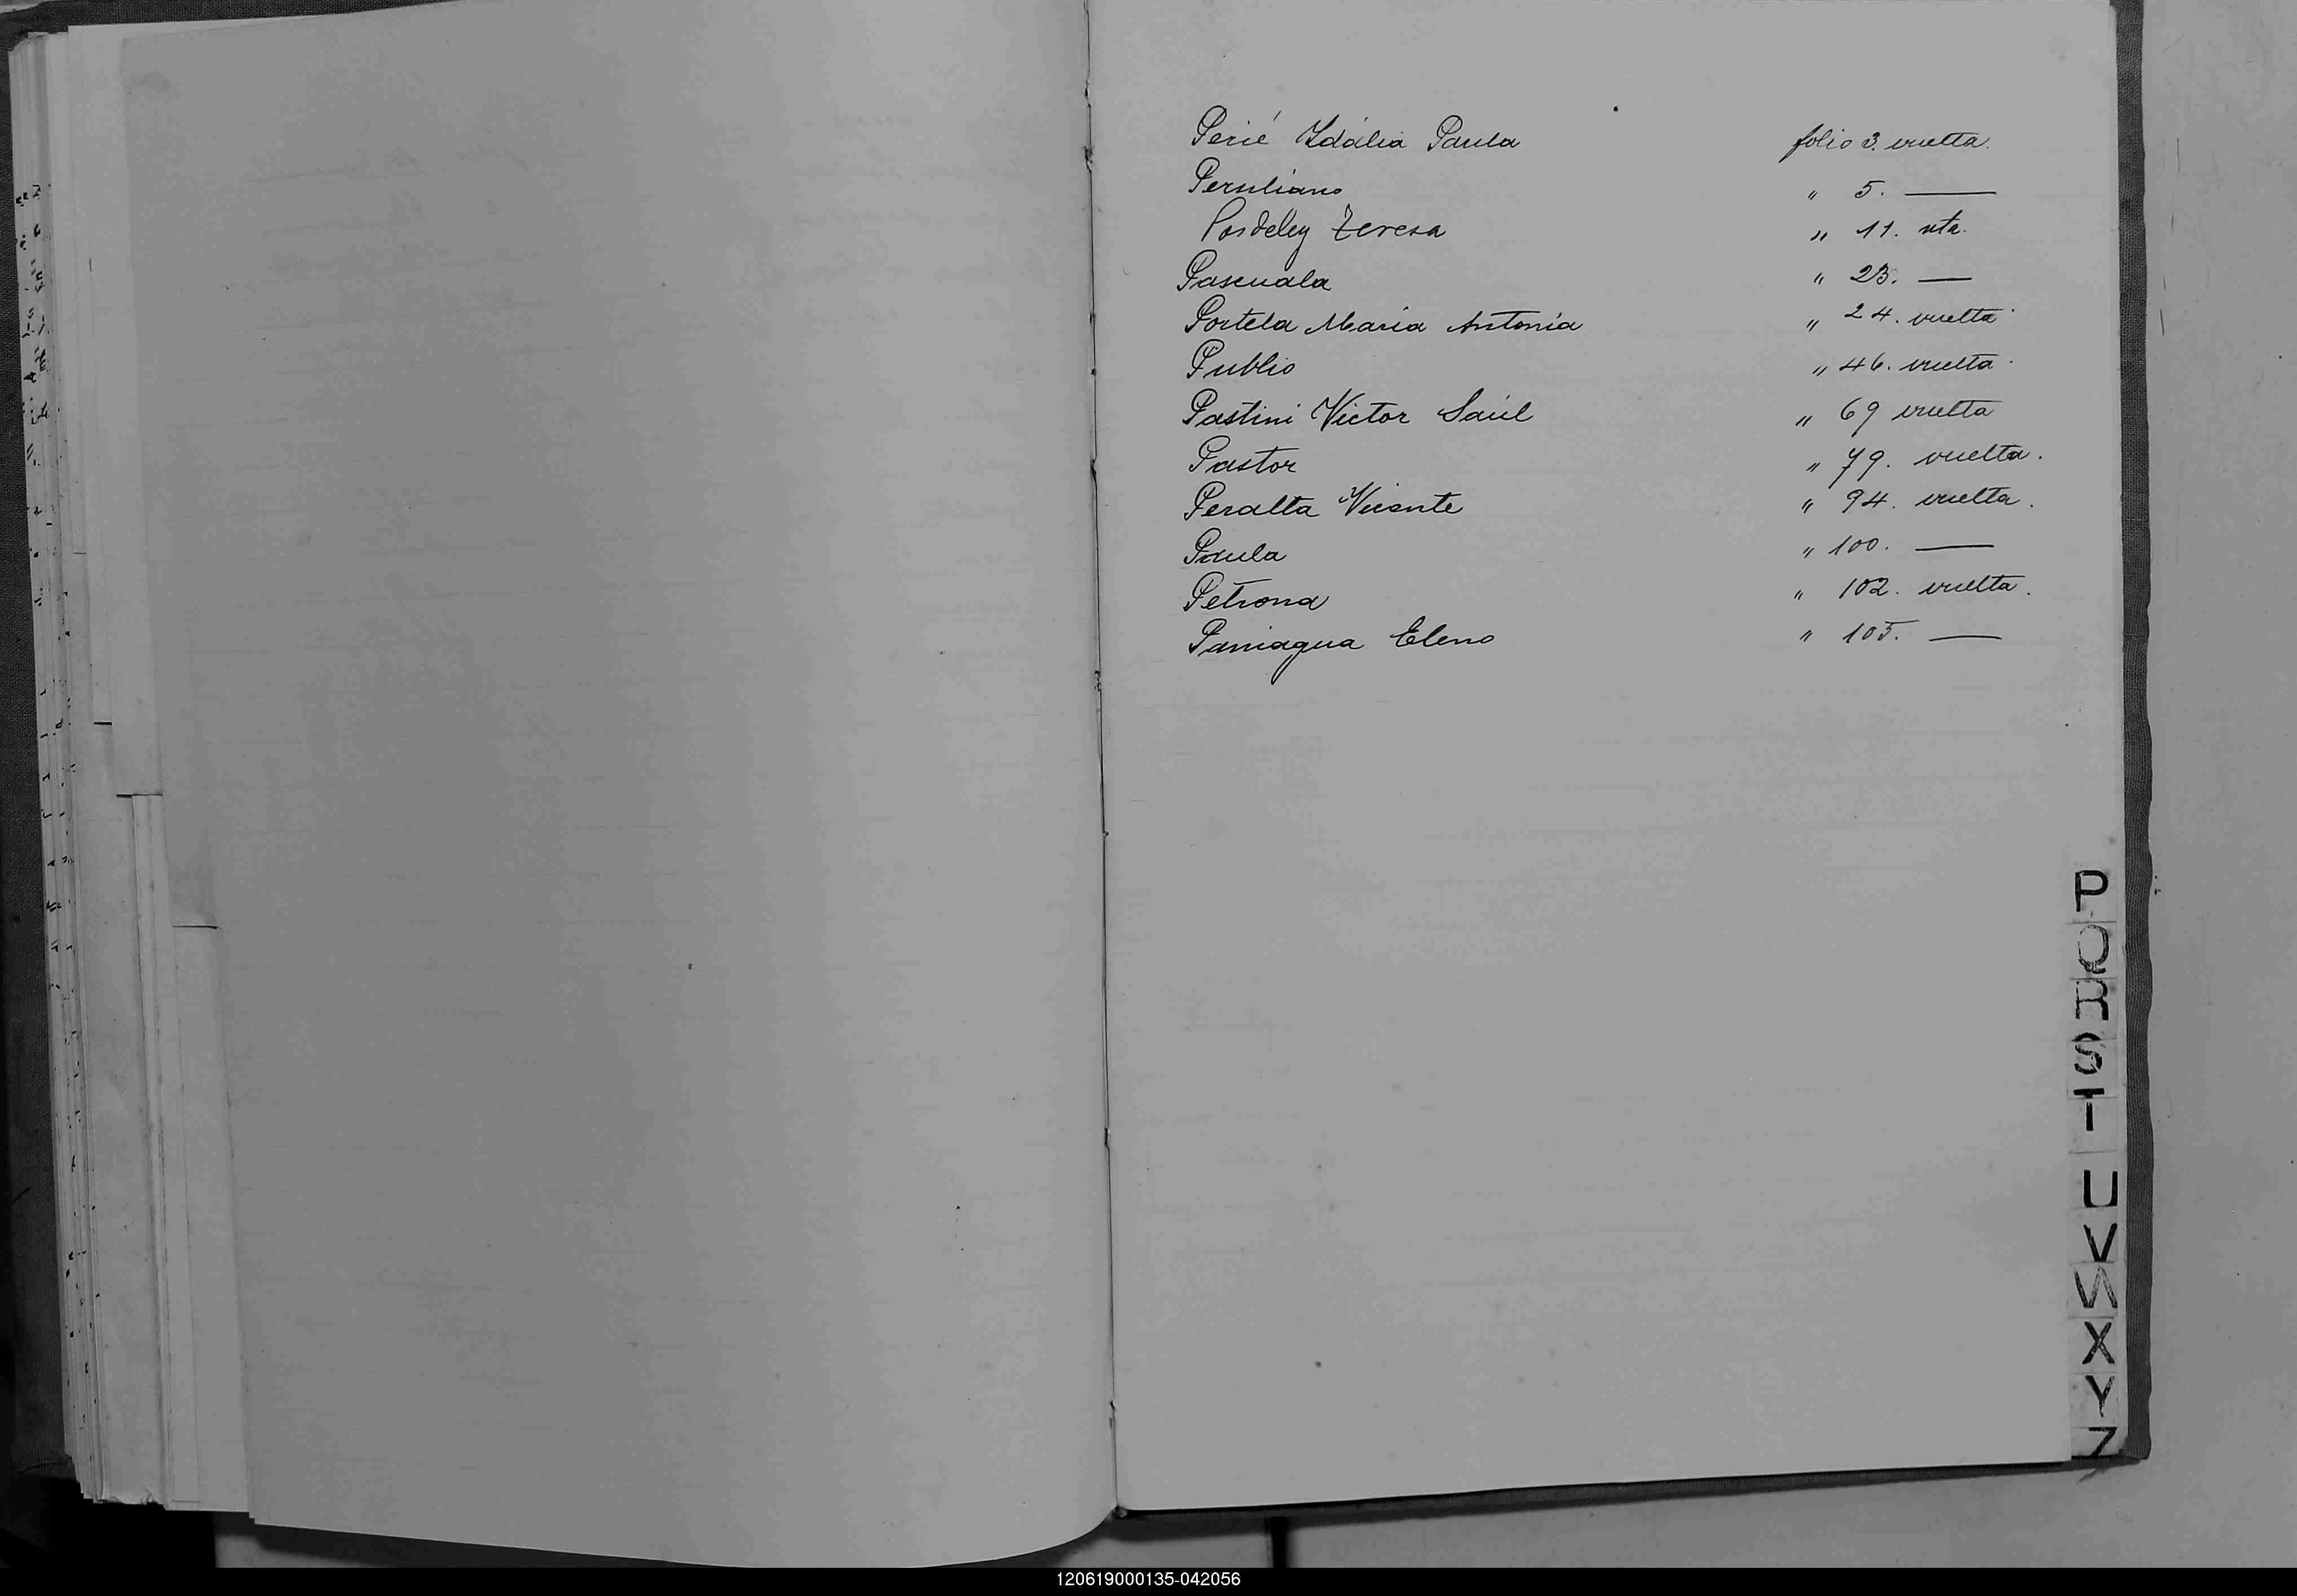 Perié Idália Paula folio 3. vuelta.
Peruliano " 5. —
Posdeley Teresa " 11. vta.
Pascuala " 23. —
Portela Maria Antonia " 24. vuelta
Publio " 46. vuelta
Pastini Victor Saúl " 69 vuelta
Pastor " 79. vuelta.
Peralta Vicente " 94. vuelta.
Paula " 100. —
Petrona " 102. vuelta.
Paniagua Eleno " 105. —
P
Q
R
S
T
U
V
W
X
Y
Z
120619000135-042056